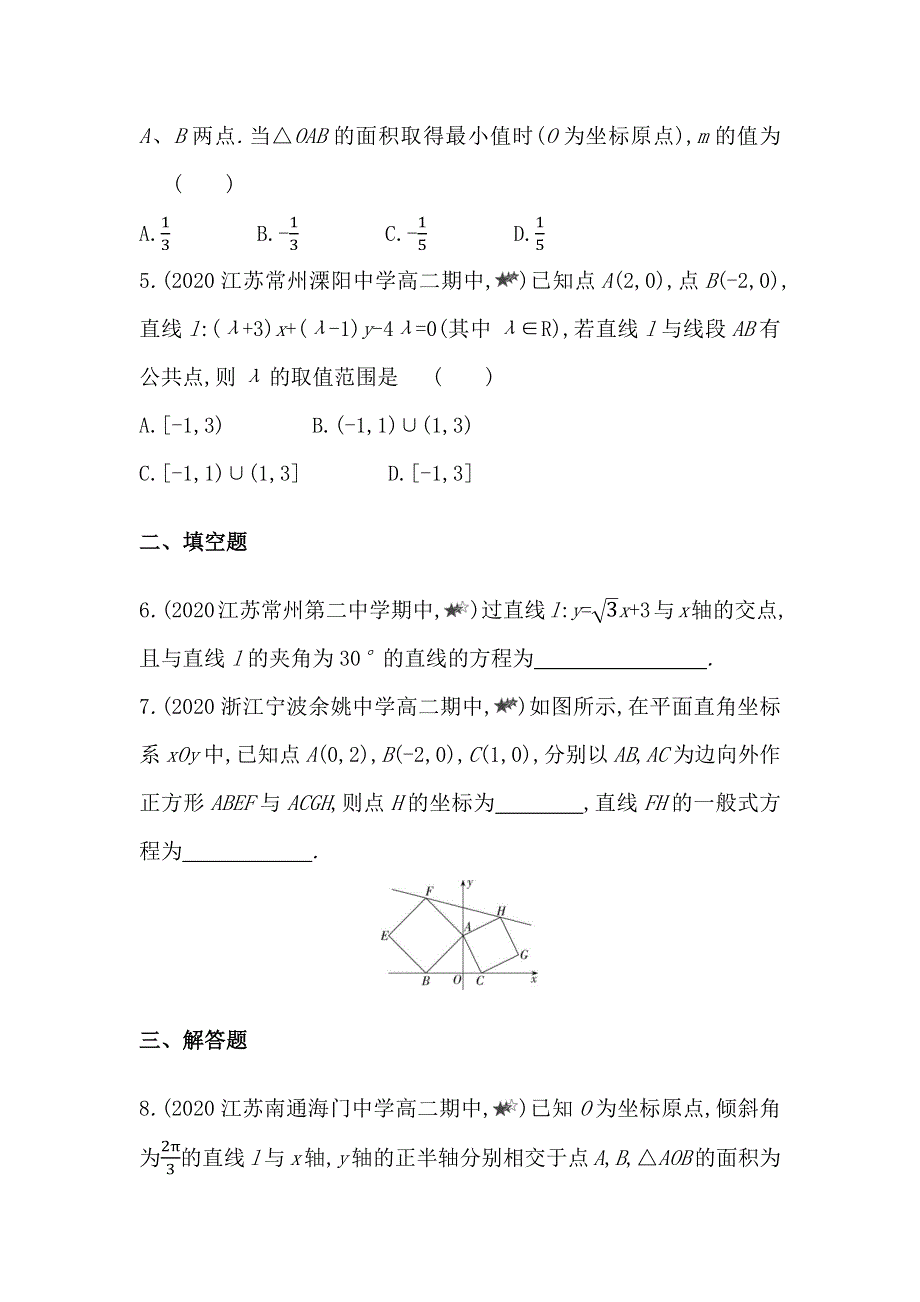 A、B 两点.当△OAB 的面积取得最小值时(O 为坐标原点),m 的值为
(　　)
A.1/3　　B.-1/3　　C.-1/5　　D.1/5
5.(2020 江苏常州溧阳中学高二期中,★☆)已知点 A(2,0),点 B(-2,0),
直线 l:(λ+3)x+(λ-1)y-4λ=0(其中 λ∈R),若直线 l 与线段 AB 有
公共点,则 λ 的取值范围是　(　　)
A.[-1,3)　　B.(-1,1)∪(1,3)
C.[-1,1)∪(1,3]　　D.[-1,3]
二、填空题
6.(2020 江苏常州第二中学期中,★☆)过直线 l:y=√3x+3 与 x 轴的交点,
且与直线 l 的夹角为 30°的直线的方程为　　　　.
7.(2020 浙江宁波余姚中学高二期中,★☆)如图所示,在平面直角坐标
系 xOy 中,已知点 A(0,2),B(-2,0),C(1,0),分别以 AB,AC 为边向外作
正方形 ABEF 与 ACGH,则点 H 的坐标为　　　　,直线 FH 的一般式方
程为　　　　.
F
y
H
A
E
G
B
O
C
x
三、解答题
8.(2020 江苏南通海门中学高二期中,★☆)已知 O 为坐标原点,倾斜角
为2π/3的直线 l 与 x 轴,y 轴的正半轴分别相交于点 A,B,△AOB 的面积为